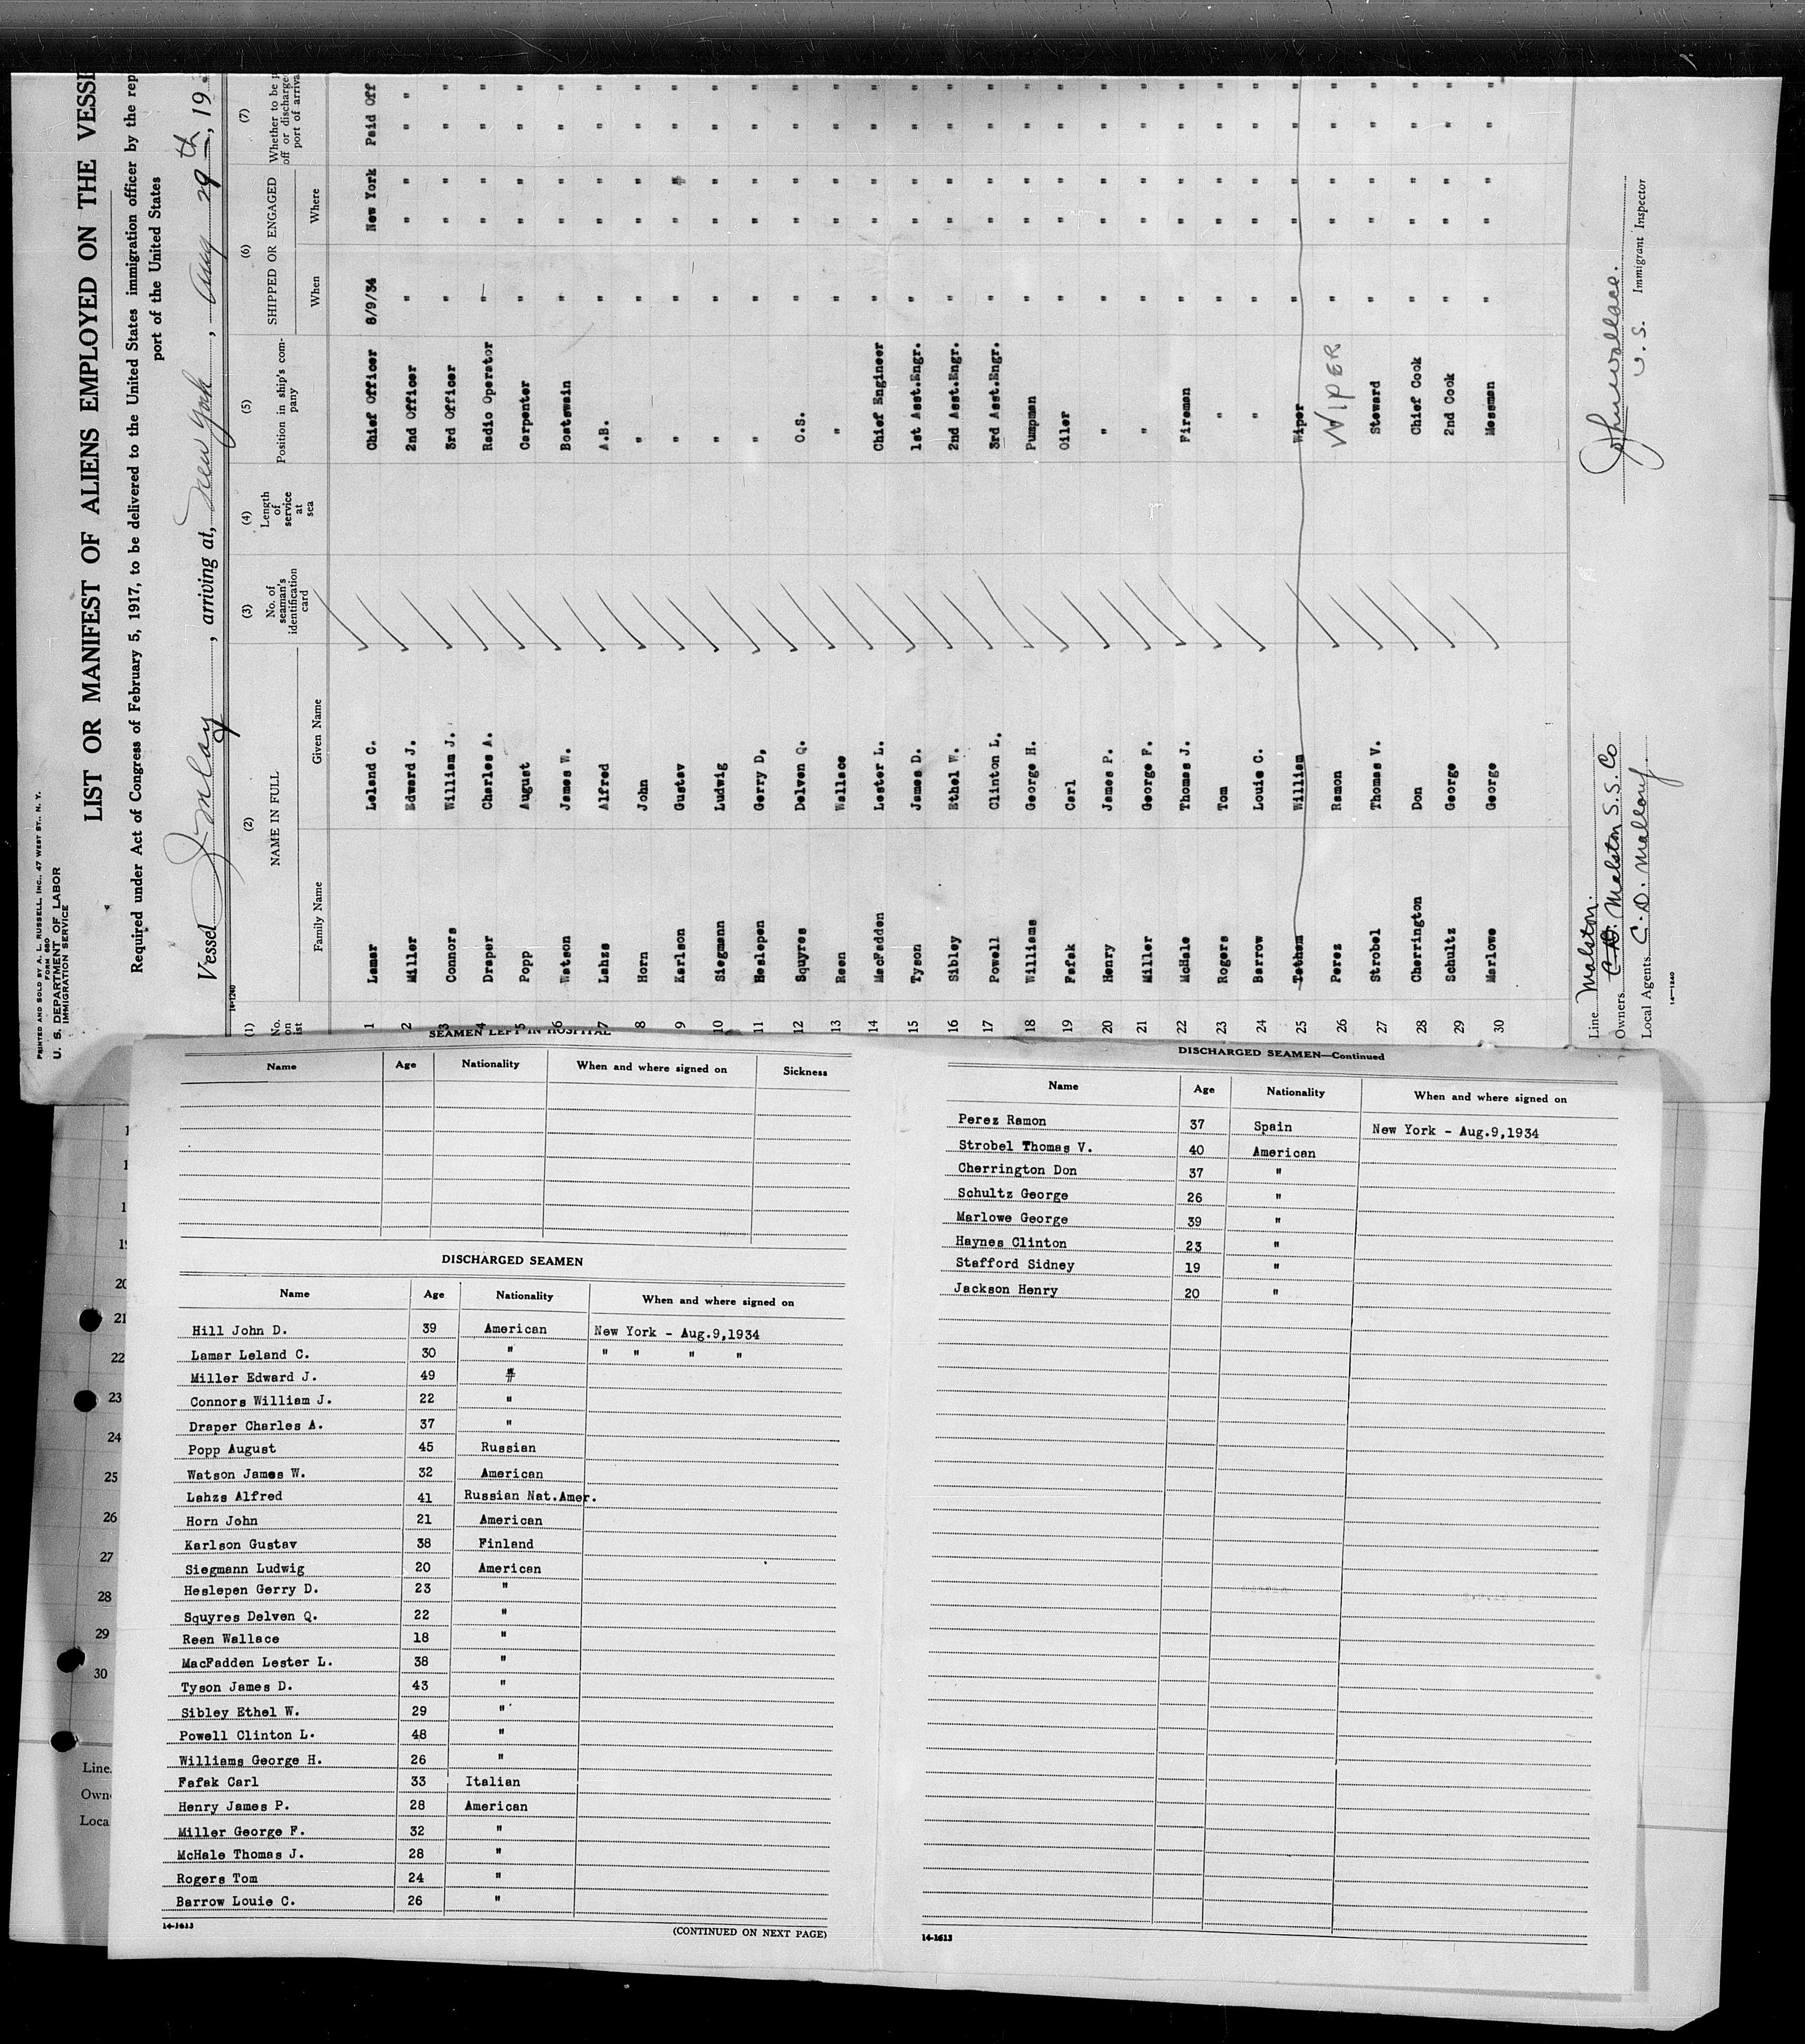 PRINTED AND SOLD BY A. L. RUSSELL, INC., 47 WEST ST., N. Y.
FORM 680
U. S. DEPARTMENT OF LABOR
IMMIGRATION SERVICE
LIST OR MANIFEST OF ALIENS EMPLOYED ON THE VESSE
Required under Act of Congress of February 5, 1917, to be delivered to the United States immigration officer by the rep
port of the United States
Vessel , arriving at, New York , Aug 29th, 19
14-1240
(1) (2) (3) (4) (5) (6) (7)
No. on list NAME IN FULL No. of seaman's identification card Length of service at sea Position in ship's company SHIPPED OR ENGAGED Whether to be off or discharge port of arriva
Family Name Given Name When Where
1 Lamar Leland C. Chief Officer 8/9/34 New York Paid Off
2 Miller Edward J. 2nd Officer " " " " "
3 Connors William J. 3rd Officer " " " " "
4 Draper Charles A. Radio Operator " " " " "
5 Popp August Carpenter " " " " "
6 Watson James W. Boatswain " " " " "
7 Lahzs Alfred A.B. " " " " "
8 Horn John " " " " " "
9 Karlson Gustav " " " " " "
10 Siegmann Ludwig " " " " " "
11 Heslepen Gerry D, " " " " " "
12 Squyres Delven Q. O.S. " " " " "
13 Reen Wallace " " " " " "
14 MacFadden Lester L. Chief Engineer " " " " "
15 Tyson James D. 1st Asst.Engr. " " " " "
16 Sibley Ethel W. 2nd Asst.Engr. " " " " "
17 Powell Clinton L. 3rd Asst.Engr. " " " " "
18 Williams George H. Pumpman " " " " "
19 Fafak Carl Oiler " " " " "
20 Henry James P. " " " " " "
21 Miller George F. " " " " " "
22 McHale Thomas J. Fireman " " " " "
23 Rogers Tom " " " " " "
24 Barrow Louie C. " " " " " "
25 Tatham William Wiper " " " " "
26 Perez Ramon WIPER " " " " "
27 Strobel Thomas V. Steward " " " " "
28 Cherrington Don Chief Cook " " " " "
29 Schultz George 2nd Cook " " " " "
30 Marlowe George Messman " " " " "
Line Malston.
Owners C.D. Malston S.S. Co
Local Agents C. D. Mallory
14-1240
John Wallace.
U. S. Immigrant Inspector
SEAMEN LEFT IN HOSPITAL
Name Age Nationality When and where signed on Sickness
DISCHARGED SEAMEN
Name Age Nationality When and where signed on
Hill John D. 39 American New York - Aug.9,1934
Lamar Leland C. 30 " " " " "
Miller Edward J. 49 "
Connors William J. 22 "
Draper Charles A. 37 "
Popp August 45 Russian
Watson James W. 32 American
Lahzs Alfred 41 Russian Nat.Amer.
Horn John 21 American
Karlson Gustav 38 Finland
Siegmann Ludwig 20 American
Heslepen Gerry D. 23 "
Squyres Delven Q. 22 "
Reen Wallace 18 "
MacFadden Lester L. 38 "
Tyson James D. 43 "
Sibley Ethel W. 29 "
Powell Clinton L. 48 "
Williams George H. 26 "
Fafak Carl 33 Italian
Henry James P. 28 American
Miller George F. 32 "
McHale Thomas J. 28 "
Rogers Tom 24 "
Barrow Louie C. 26 "
14-1613
(CONTINUED ON NEXT PAGE)
DISCHARGED SEAMEN—Continued
Name Age Nationality When and where signed on
Perez Ramon 37 Spain New York - Aug.9,1934
Strobel Thomas V. 40 American
Cherrington Don 37 "
Schultz George 26 "
Marlowe George 39 "
Haynes Clinton 23 "
Stafford Sidney 19 "
Jackson Henry 20 "
14-1613
20
21
22
23
24
25
26
27
28
29
30
Line
Own
Loca